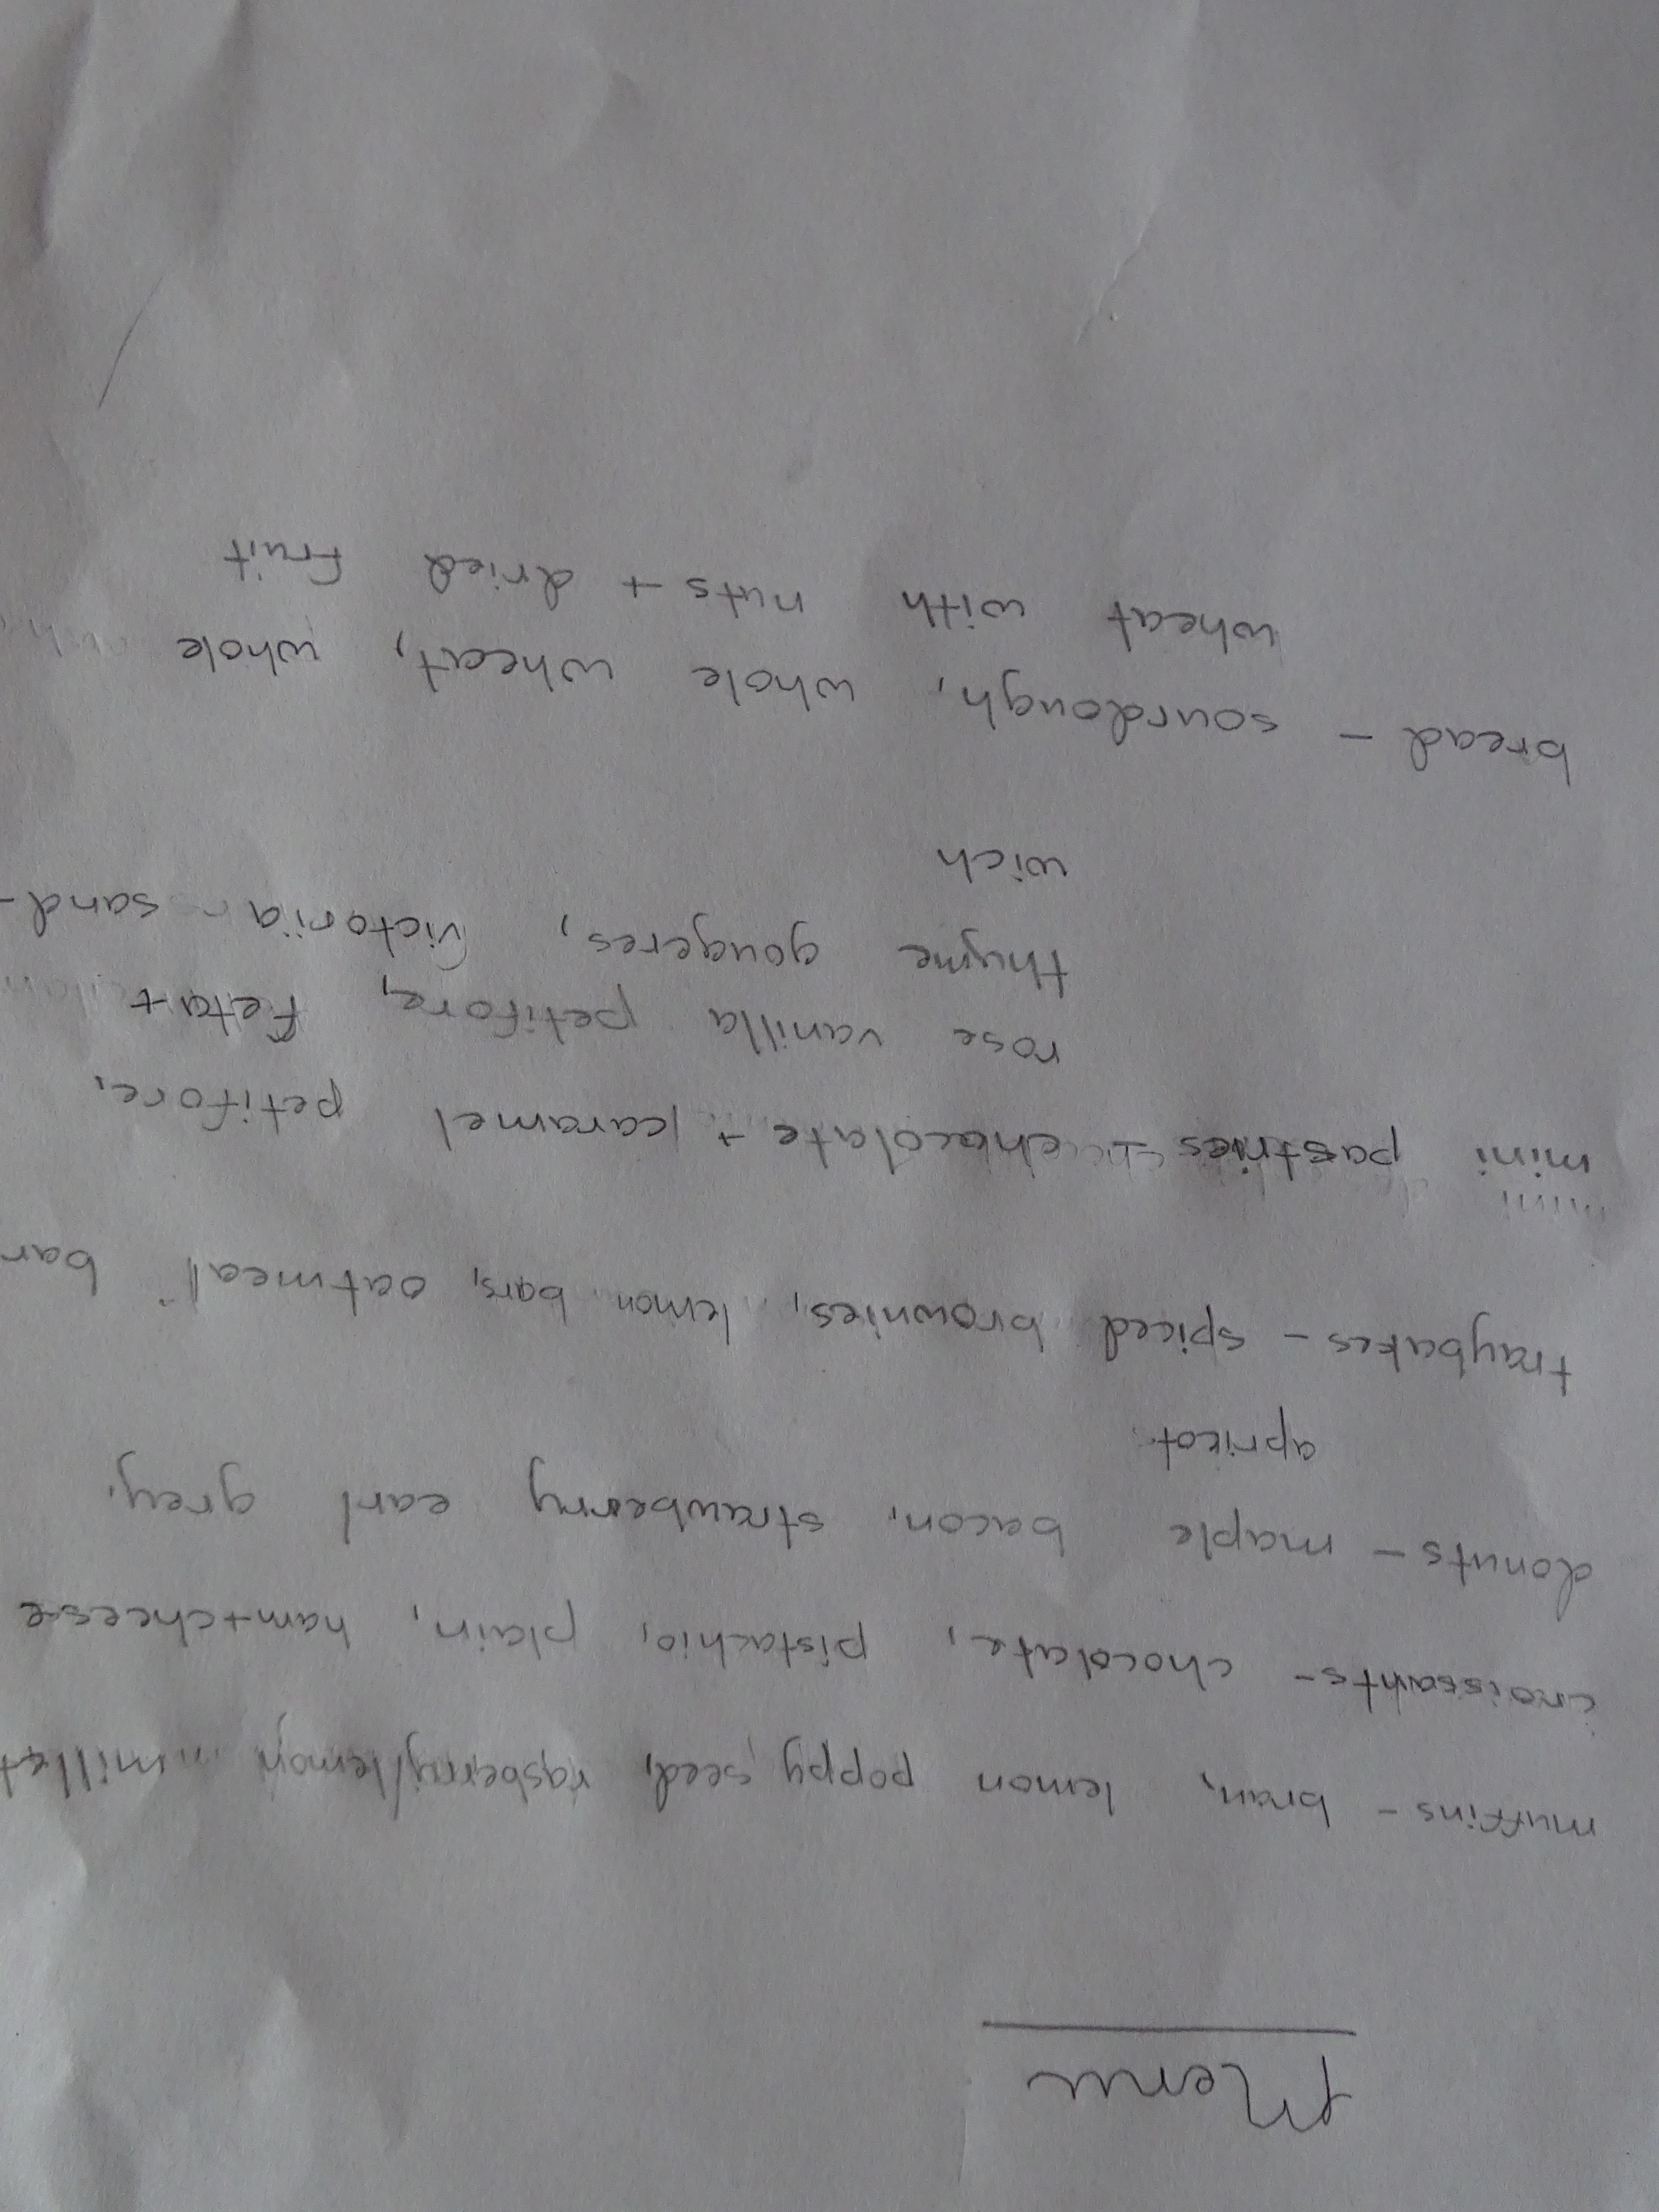 Menu
muffins - bran, lemon poppy seed, rasberry/lemon millet
croissants - chocolate, pistachio, plain, ham+cheese
donuts - maple bacon, strawberry earl grey,
apricot
traybakes - spiced brownies, lemon bars, oatmeal bar
mini pastries - chocolate + caramel petifore,
rose vanilla petifore, feta +
thyme gougeres, victoria sand-
wich
bread - sourdough, whole wheat, whole
wheat with nuts + dried fruit